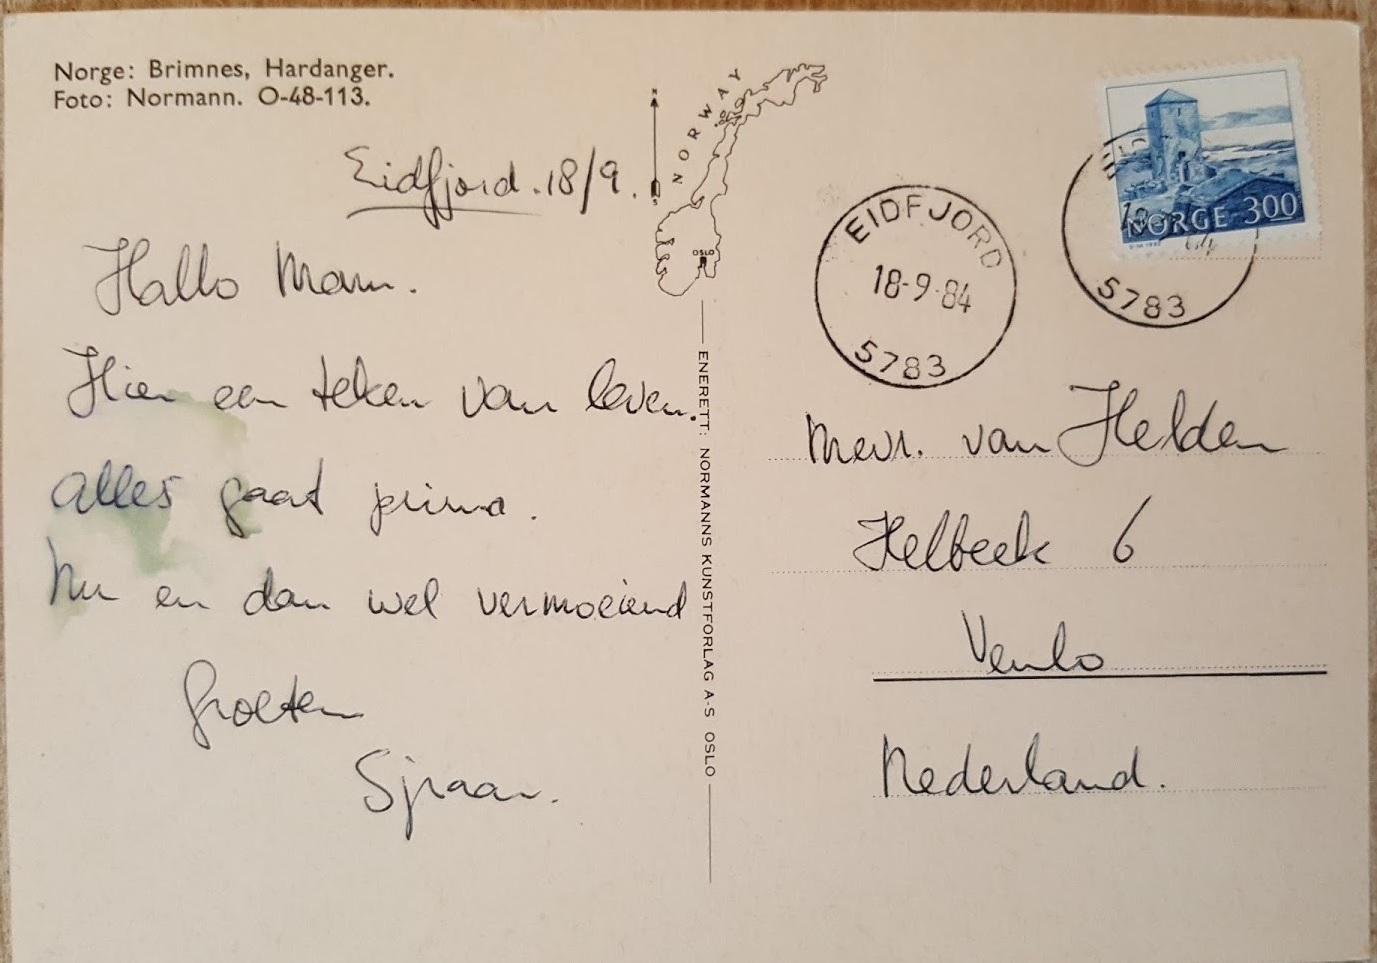 Norge: Brimnes, Hardanger.
Foto: Normann. O-48-113.
Eidfjord. 18/9.
Hallo Mam.
Hier een teken van leven.
alles gaat prima.
Nu en dan wel vermoeiend
Groeten
Sjraar.
N
S
NORWAY
OSLO
ENERETT: NORMANNS KUNSTFORLAG A-S OSLO
EIDFJORD
18-9-84
5783
NORGE 300
5783
Mevr. van Helden
Helbeek 6
Venlo
Nederland.